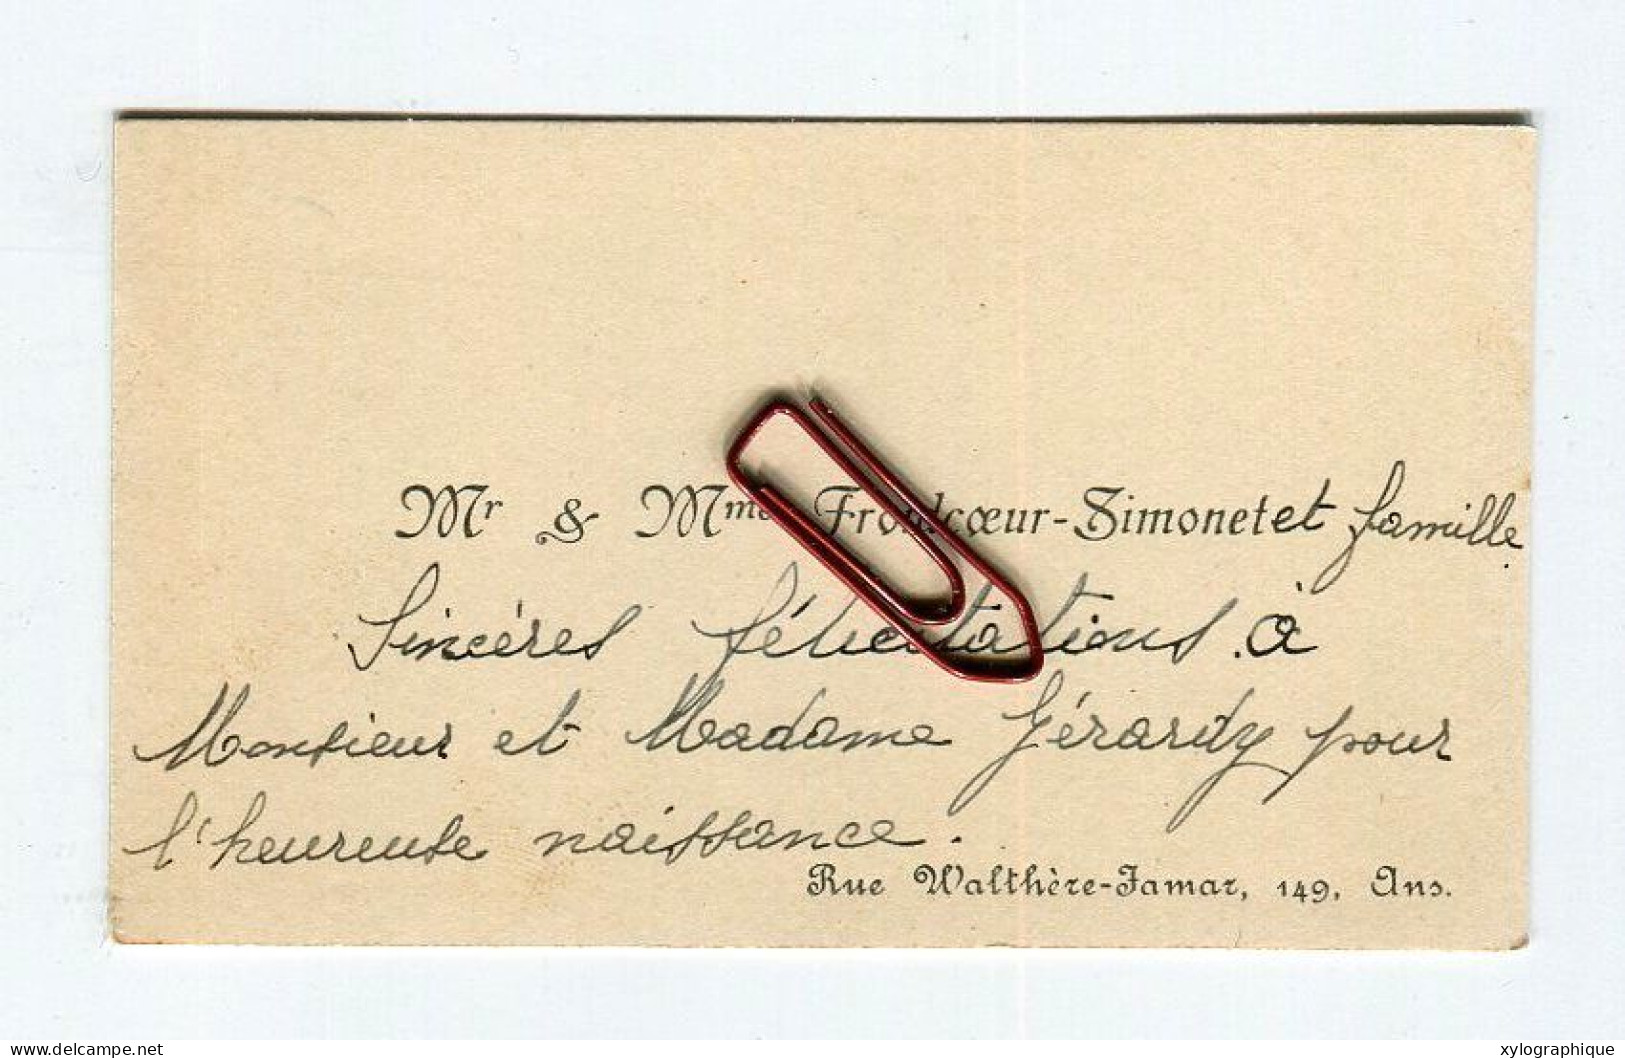 Mr & Mme Froidcœur-Simonet et famille.
Sincéres félicitations à
Monsieur et Madame Gérardy pour
l'heureuse naissance.
Rue Walthère-Jamar, 149, Ans.
www.delcampe.net
xylographique